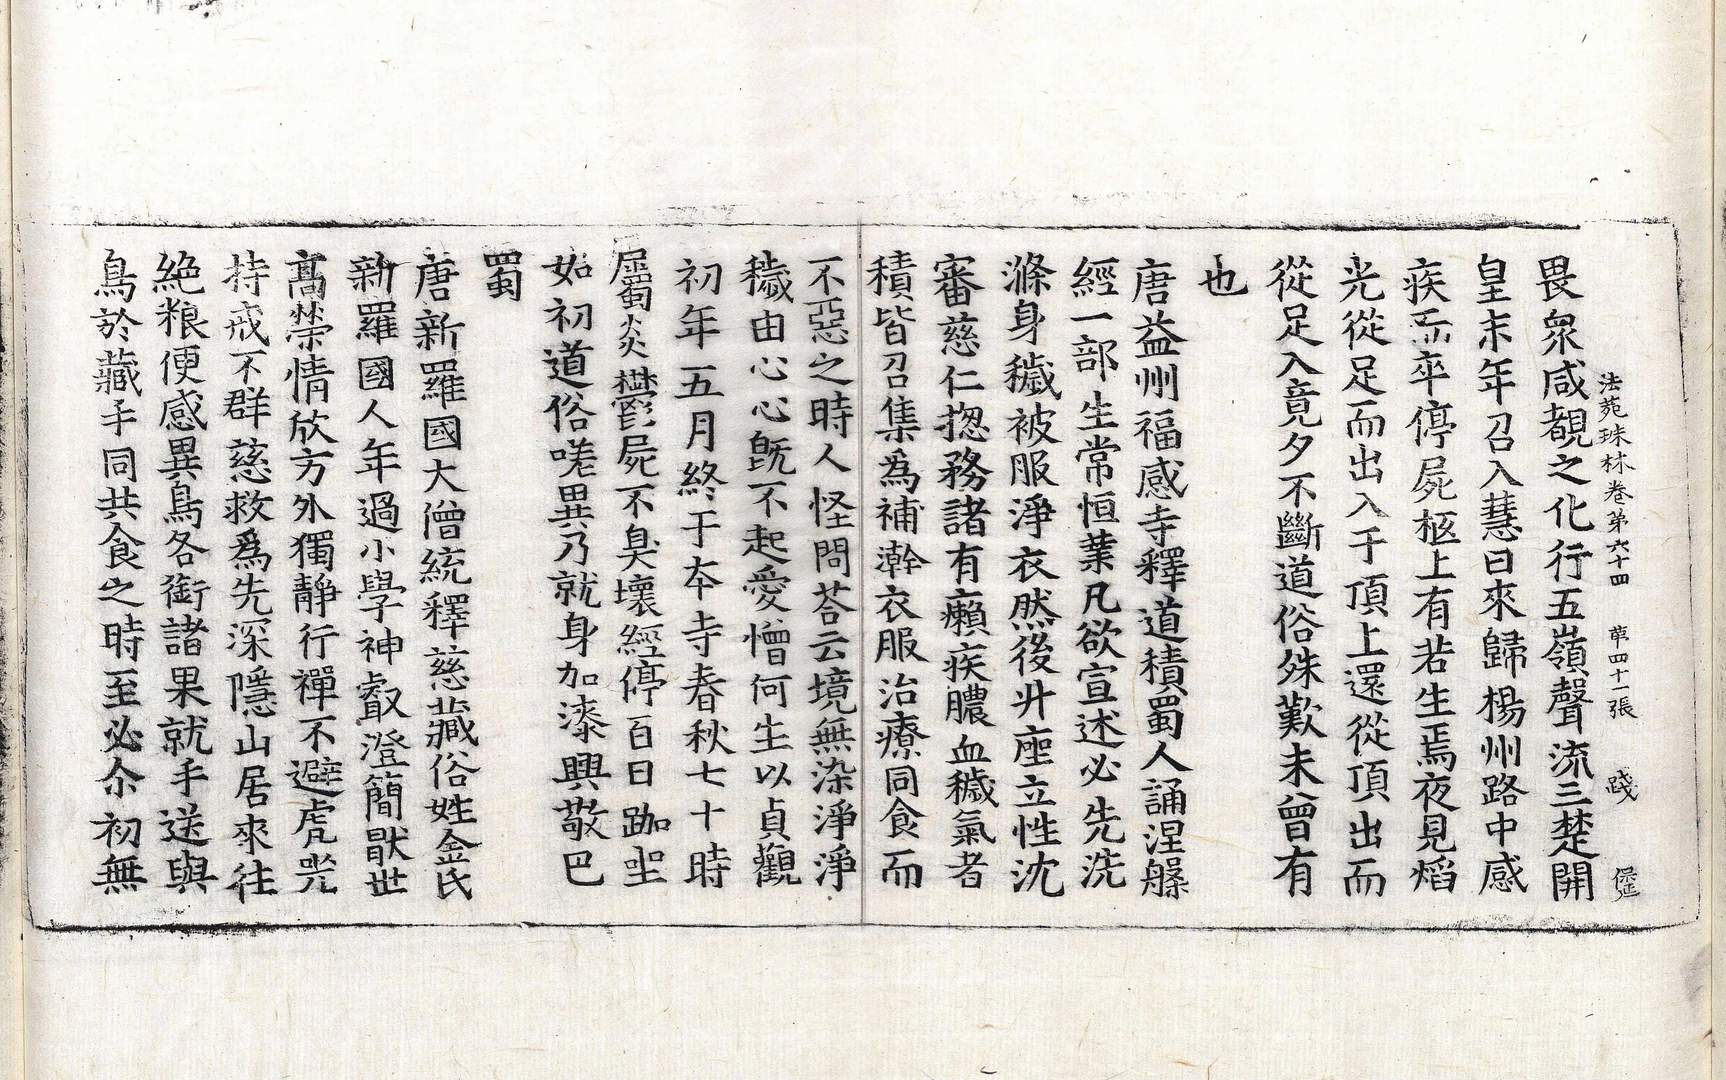 法苑珠林卷第六十四 第四十一張 踐
畏衆咸覩之化行五嶺聲流三楚開
皇末年召入慧日來歸楊州路中感
疾而卒停屍柩上有若生焉夜見焰
光從足而出入于頂上還從頂出而
從足入竟夕不斷道俗殊歎未曾有
也
唐益州福感寺釋道積蜀人誦涅槃
經一部生常恒業凡欲宣述必先洗
滌身穢被服淨衣然後升座立性沈
審慈仁揔務諸有癩疾膿血穢氣者
積皆召集爲補澣衣服治療同食而
不惡之時人怪問荅云境無染淨淨
穢由心心旣不起愛憎何生以貞觀
初年五月終于夲寺春秋七十時
屬炎鬱屍不臭壞經停百日跏坐
如初道俗嗟異乃就身加漆興敬巴
蜀
唐新羅國大僧統釋慈藏俗姓金氏
新羅國人年過小學神叡澄簡猒世
髙榮情放方外獨靜行禪不避虎兕
持戒不群慈救爲先深隱山居來往
絶粮便感異鳥各銜諸果就手送與
鳥於藏手同共食之時至必尒初無